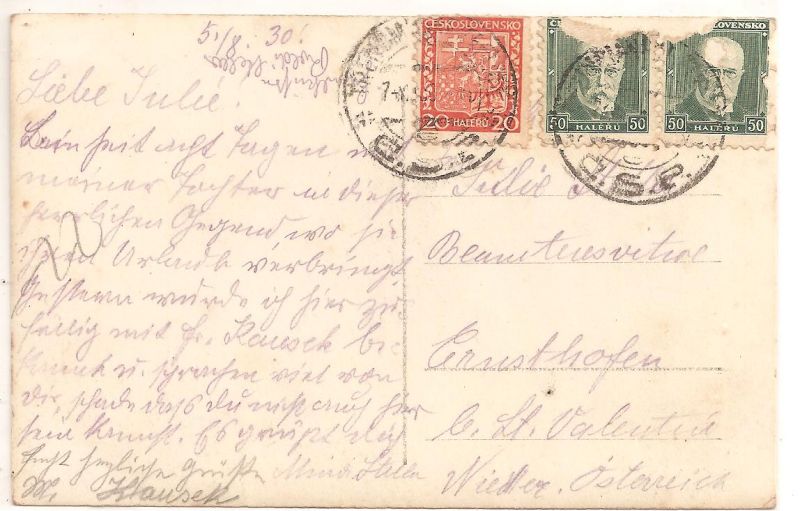 5./8. 30.
Liebe Julie!
Bin seit acht Tagen mit
meiner Tochter in dieser
herrlichen Gegend wo sie
ihren Urlaub verbringt
Gestern wurde ich hier zu-
fällig mit Fr. Kausek be-
kannt u. sprachen viel von
Dir, schade dass du nicht auch hier
sein kannst. Es grüßt dich
herzliche Grüße
ČESKOSLOVENSKO
20 HALÉŘŮ 20
50 HALÉŘŮ 50
SLOVENSKO
50 HALÉŘŮ 50
Julie
Beamtenswitwe
Ernsthofen
b. St. Valentin
Nieder. Österreich